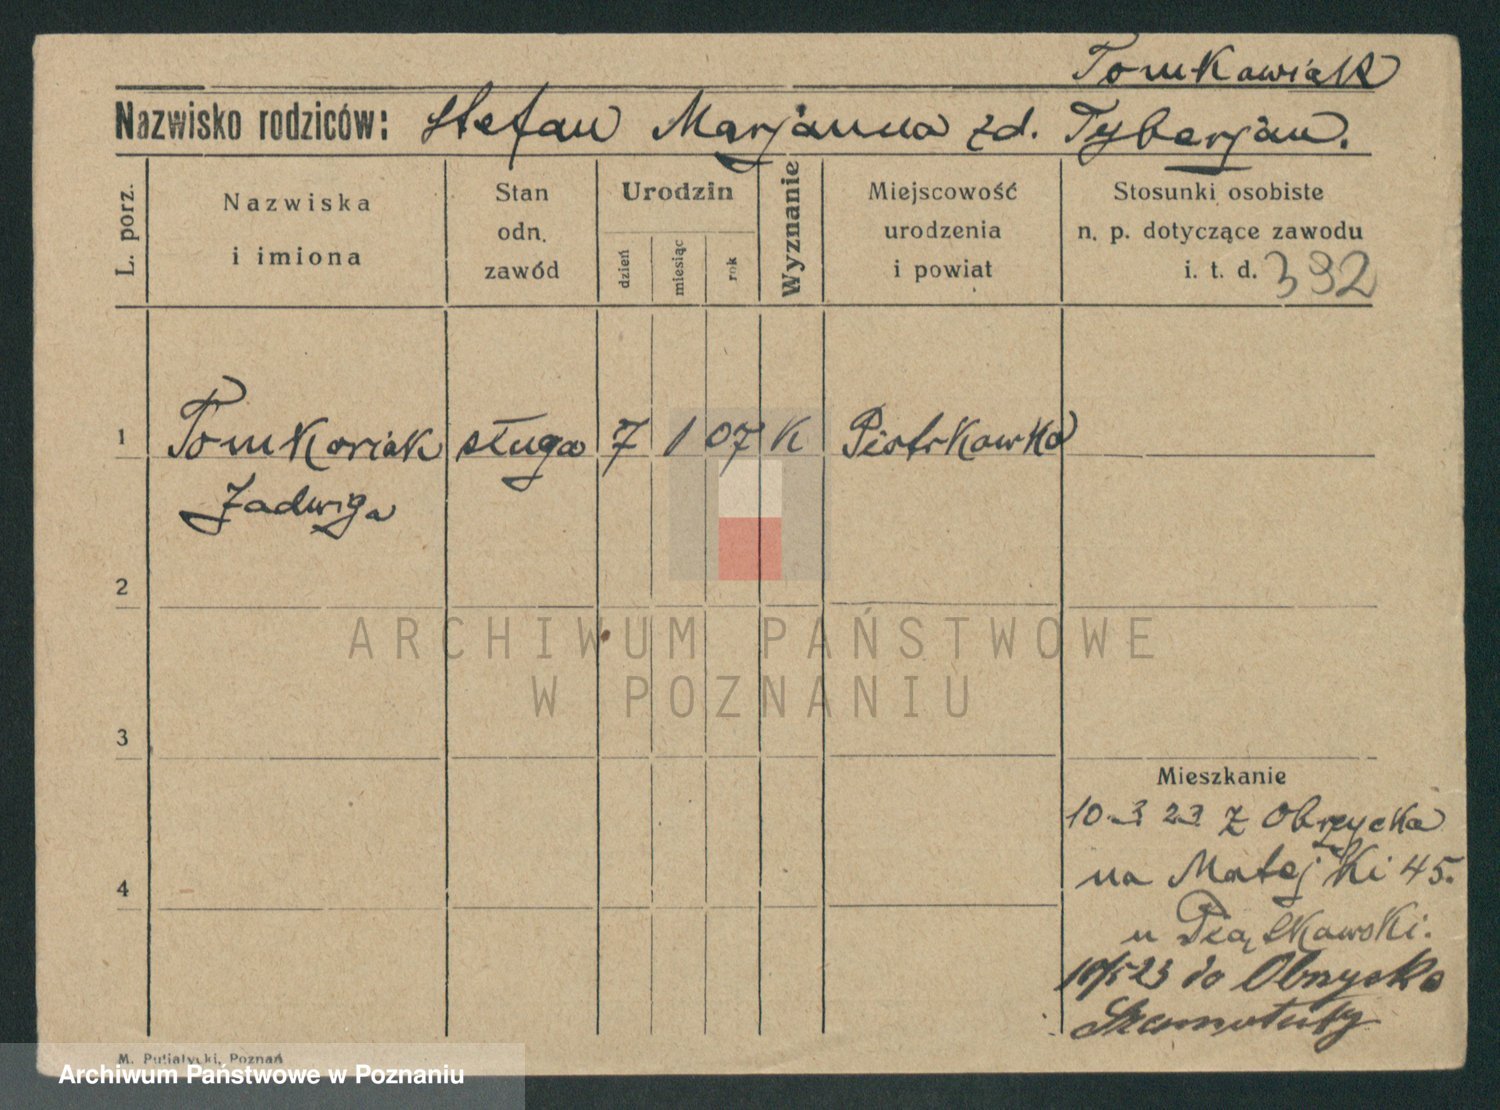 Tomkowiak
Nazwisko rodziców: Stefan Marjanna zd. Tyberjan.
L. porz.
Nazwiska i imiona
Stan odn. zawód
Urodzin
dzień
miesiąc
rok
Wyznanie
Miejscowość urodzenia i powiat
Stosunki osobiste n. p. dotyczące zawodu i. t. d. 392
1 Tomkoviak sługa 7 1 07 K Piotrkowko
Jadwiga
2
ARCHIWUM PAŃSTWOWE
W POZNANIU
3
Mieszkanie
10.3 23 z Obrzycka
na Matejki 45.
4
u Piątkowski.
10/5 23 do Obrzycko
Szamotuły
M. Putiatycki, Poznań
Archiwum Państwowe w Poznaniu